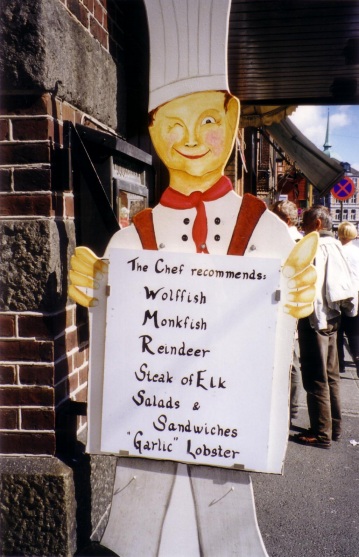 The Chef recommends:
Wolffish
Monkfish
Reindeer
Steak of Elk
Salads &
Sandwiches
"Garlic" Lobster